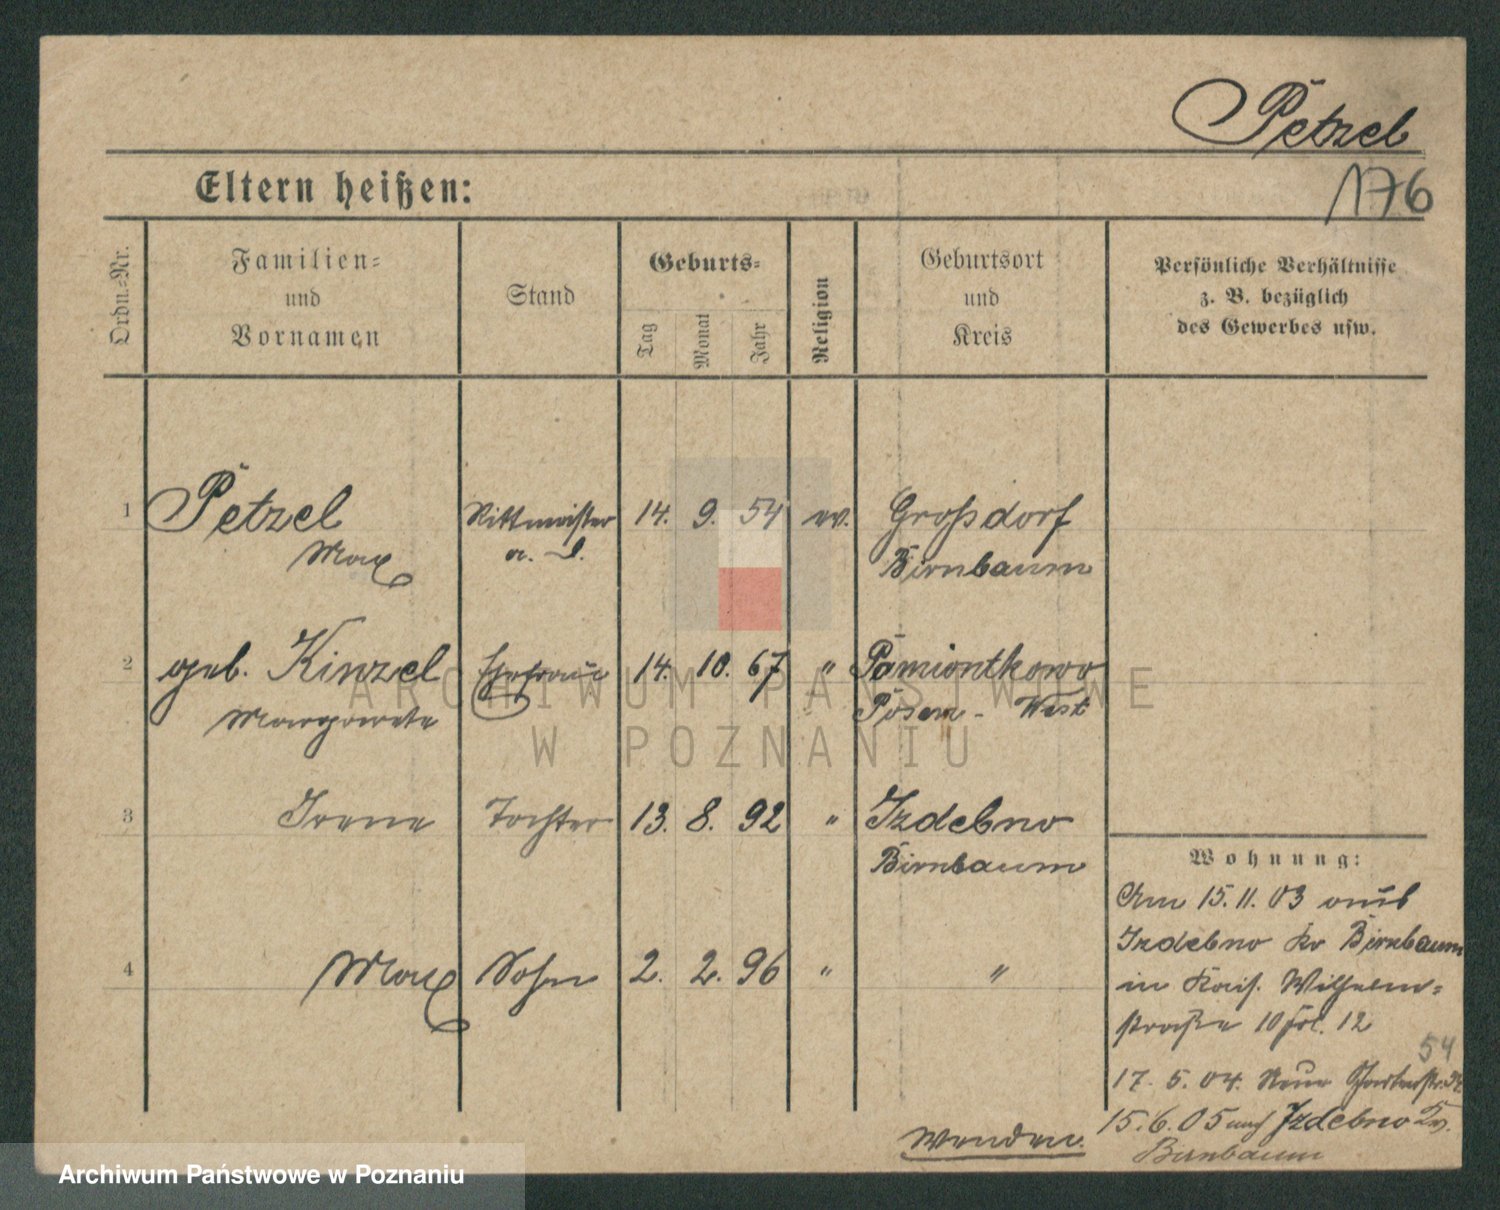 Petzel
Eltern heißen:
176
Ordn.-Nr.
Familien-
und
Vornamen
Stand
Geburts-
Tag
Monat
Jahr
Religion
Geburtsort
und
Kreis
Persönliche Verhältnisse
z. B. bezüglich
des Gewerbes usw.
1 Petzel Rittmeister 14. 9. 54 ev. Großdorf
Max a. D. Birnbaum
2 geb. Kinzel Ehefrau 14. 10. 67 " Pamiontkowo
Margarete Posen - West
3 Irene Tochter 13. 8. 92 " Izdebno
Birnbaum
4 Max Sohn 2. 2. 96 " "
Wohnung:
Am 15. 11. 03 aus
Izdebno Kr Birnbaum
in Kais. Wilhelm-
straße 10
12
54
17. 5. 04. Neue Gartenstr.
15. 6. 05 nach Izdebno Kr.
Birnbaum
Wenden.
ARCHIWUM PAŃSTWOWE
W POZNANIU
Archiwum Państwowe w Poznaniu